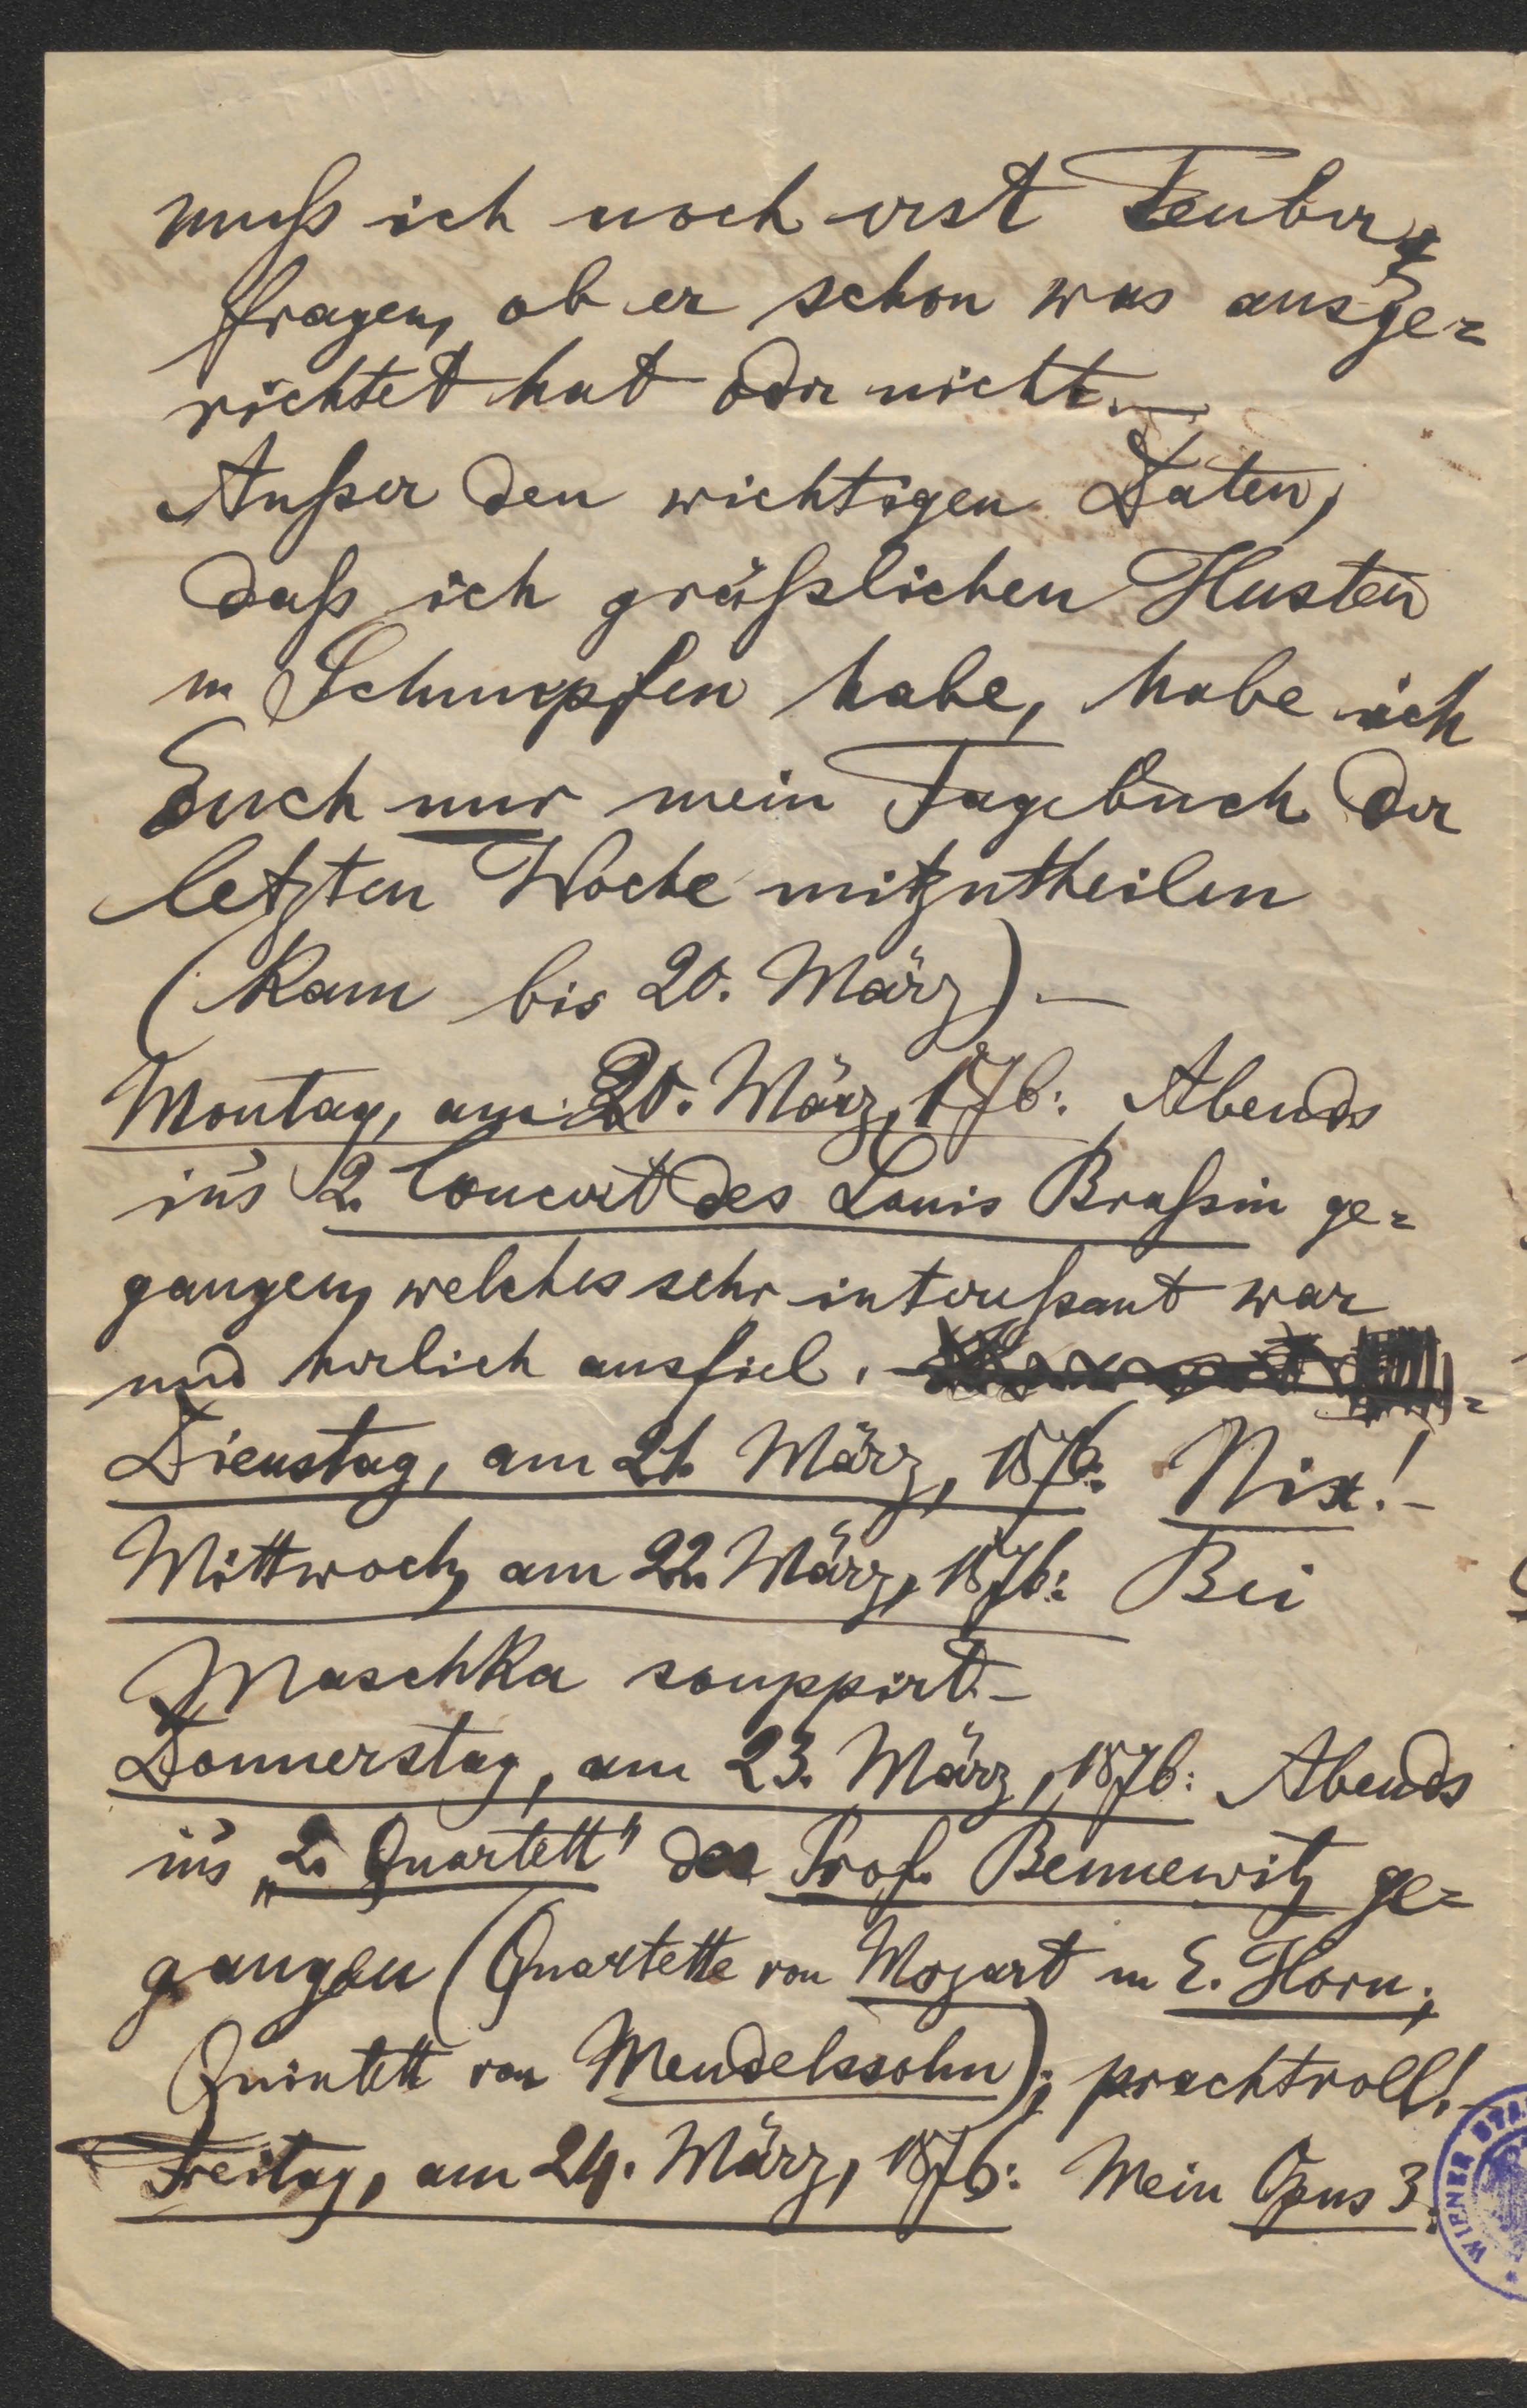 muß ich noch erst Teuber
fragen, ob er schon was ausge=
richtet hat oder nicht.—
Außer den wichtigen Daten,
daß ich gräßlichen Husten
u Schnupfen habe, habe ich
Euch nur mein Tagebuch der
letzten Woche mitzutheilen
(kam bis 20. März).—
Montag, am 20. März, 1876: Abends
in's 2. Concert des Louis Braßin ge=
gangen, welches sehr intereßant war
und herlich ausfiel.
Dienstag, am 21. März, 1876: Nix!–
Mittwoch, am 22. März, 1876: Bei
Maschka souppirt.–
Donnerstag, am 23. März, 1876: Abends
in's „2. Quartett" des Prof. Bennewitz ge=
gangen (Quartette von Mozart u E. Horn;
Quintett von Mendelssohn); prachtvoll!–
Freitag, am 24. März, 1876: Mein Opus 3,
WIENER STA